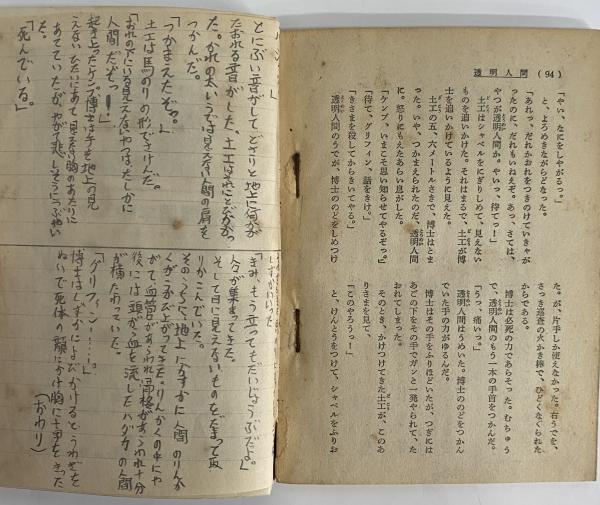 透明人間 (94)
「やい、なにをしやがるっ。」
と、よろめきながらどなった。
「あれっ、だれかおれをつきのけていきゃが
ったのに、だれもいねえぞ。あっ、さては、
やつが透明人間か。やいっ、待てっ!」
土工はシャベルをにぎりしめて、見えない
ものを追いかけた。それはまるで、土工が博
士を追いかけているように見えた。
土工の五、六メートルさきで、博士はとま
った。いや、つかまえられたのだ、透明人間
に。怒りにもえたあらい息がした。
「ケンプ、いまこそ思い知らせてやるぞっ。」
「待て、グリフィン、話をきけ。」
「きさまを殺してからきいてやる。」
透明人間のうでが、博士ののどをしめつけ
た。が、片手しか使えなかった。右うでを、
さっき巡査の火かき棒で、ひどくなぐられた
からである。
博士は必死の力であらそった。むちゅう
で、透明人間のもう一本の手首をつかんだ。
「うっ、痛いっ。」
透明人間はうめいた。博士ののどをつかん
でいた手の力がゆるんだ。
博士はその手をふりほどいたが、つぎには
あごの下をその手でガンと一発やられて、た
おれてしまった。
そのとき、かけつけてきた土工が、このあ
りさまを見て、
「このやろうっ!」
と、けんとうをつけて、シャベルをふりお
とにぶい音がしてどさりと地上に何かが
たおれる音がした、土工はそれにとびかかっ
た。かれの太いうでは見えない人間の肩を
つかんだ。
「つかまえたぞっ。」
土工は馬のりの形でさけんだ。
「おれの下にいる見えないやつは、たしかに
人間だぞっー!」
起き上ったケンプ博士は手を地上の見
えないひたいにあて見えない胸のあたりに
あてていたが、やがて悲しそうにつぶやい
た。
「死んでいる。」
「きみ、もう立ってもだいじょうぶだよ。」
人々が集まってきた。
そして目に見えないものをだまって取
りかこんでいた。
そのうちに、地上にかすかに人間のりんか
くがうかび上がってきた。りんかくの中にや
がて血管があらわれ骨格があらわれ十分
後には頭から血を流したハダカの人間
が横たわっていた。
「グリフィン……!」
博士はしずかによびかけるとうわぎを
ぬいで死体の顔にかけ胸に十字をきった
(おわり)